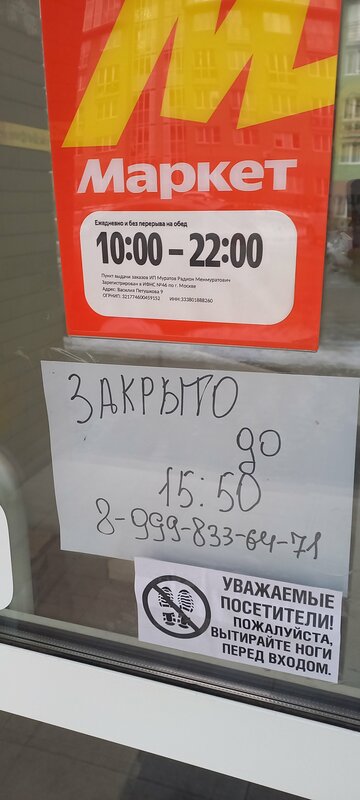 Маркет
Ежедневно и без перерыва на обед
10:00 – 22:00
Пункт выдачи заказов ИП Муратов Радион Менмуратович
Зарегистрирован в ИФНС №46 по г. Москве
Адрес: Василия Петушкова 9
ОГРНИП: 321774600419152 ИНН:333801888260
ЗАКРЫТО
до
15:50
8-999-833-64-71
УВАЖАЕМЫЕ
ПОСЕТИТЕЛИ!
ПОЖАЛУЙСТА,
ВЫТИРАЙТЕ НОГИ
ПЕРЕД ВХОДОМ.